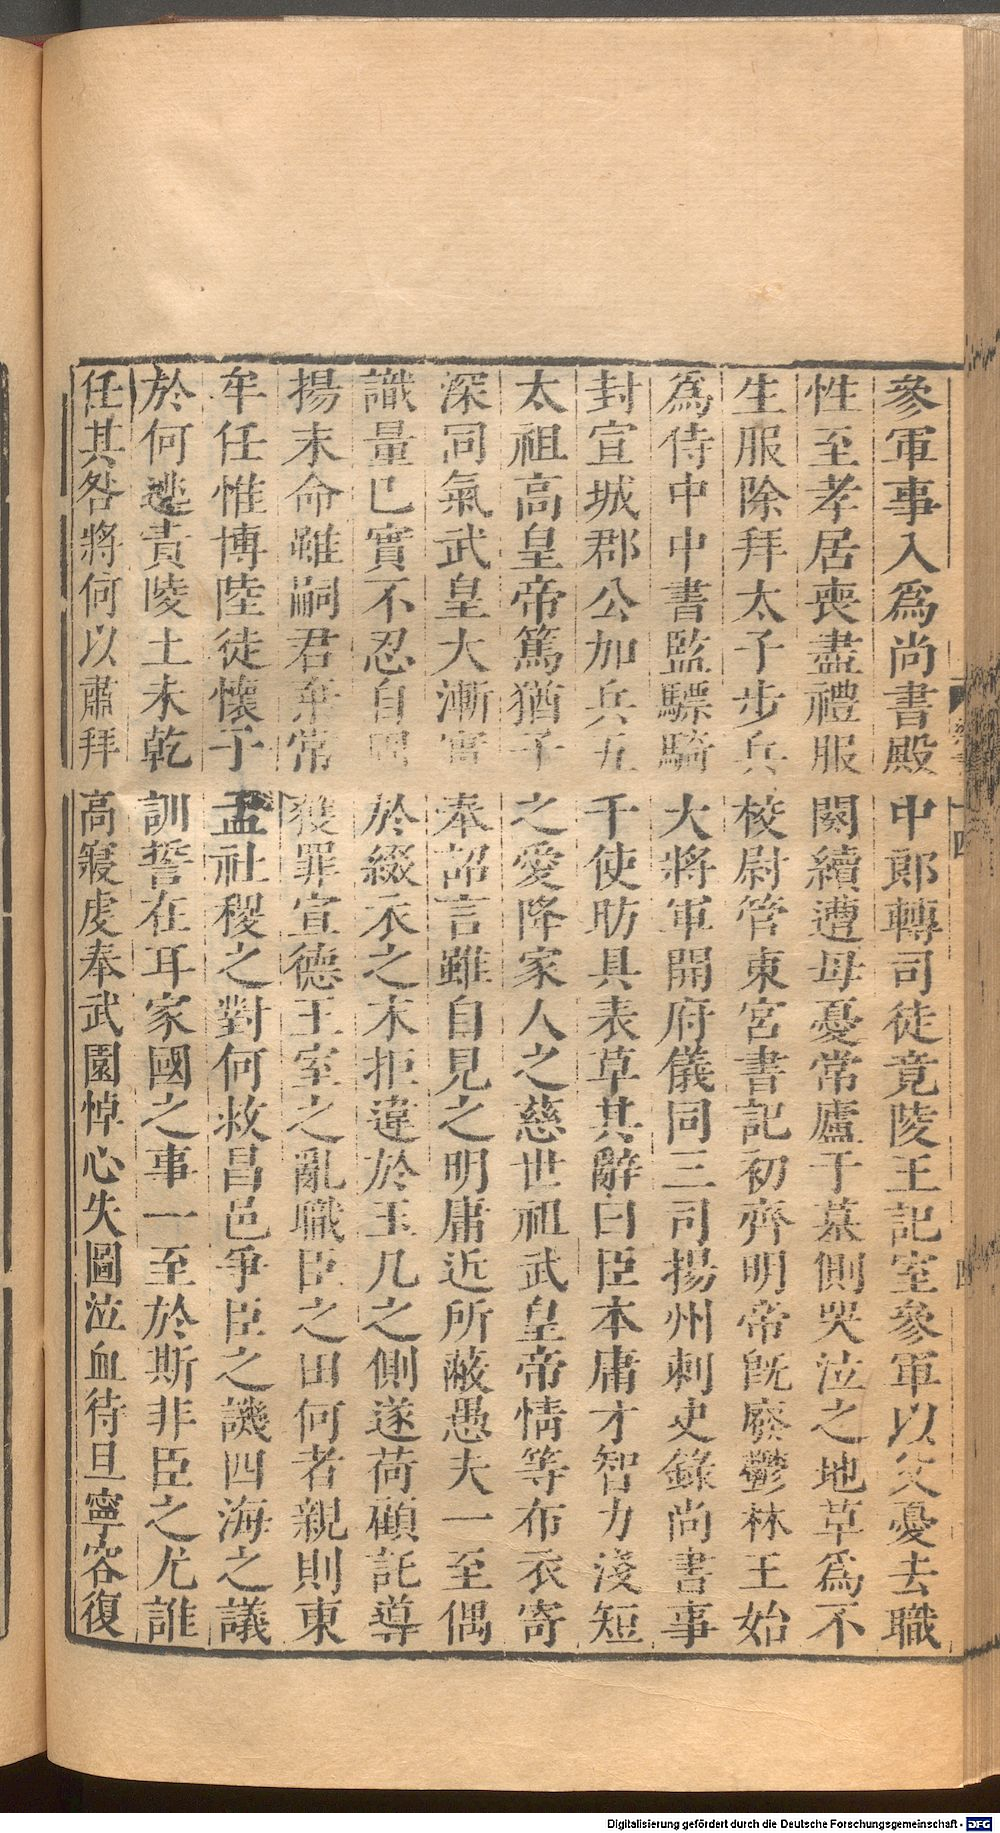 參軍事入爲尚書殿中郎轉司徒竟陵王記室參軍以父憂去職
性至孝居喪盡禮服闋續遭母憂常廬于墓側哭泣之地草爲不
生服除拜太子步兵校尉管東宮書記初齊明帝旣廢鬱林王始
爲侍中中書監驃騎大將軍開府儀同三司揚州刺史錄尚書事
封宣城郡公加兵五千使昉具表草其辭曰臣本庸才智力淺短
太祖高皇帝篤猶子之愛降家人之慈世祖武皇帝情等布衣寄
深同氣武皇大漸實奉詔言雖自見之明庸近所蔽愚夫一至偶
識量已實不忍自固於綴衣之末拒違於玉几之側遂荷顧託導
揚末命雖嗣君棄常獲罪宣德王室之亂職臣之由何者親則東
牟任惟博陸徒懷子孟社稷之對何救昌邑爭臣之譏四海之議
於何逃責陵土未乾訓誓在耳家國之事一至於斯非臣之尤誰
任其咎將何以肅拜高寢虔奉武園悼心失圖泣血待旦寧容復
四
Digitalisierung gefördert durch die Deutsche Forschungsgemeinschaft - DFG